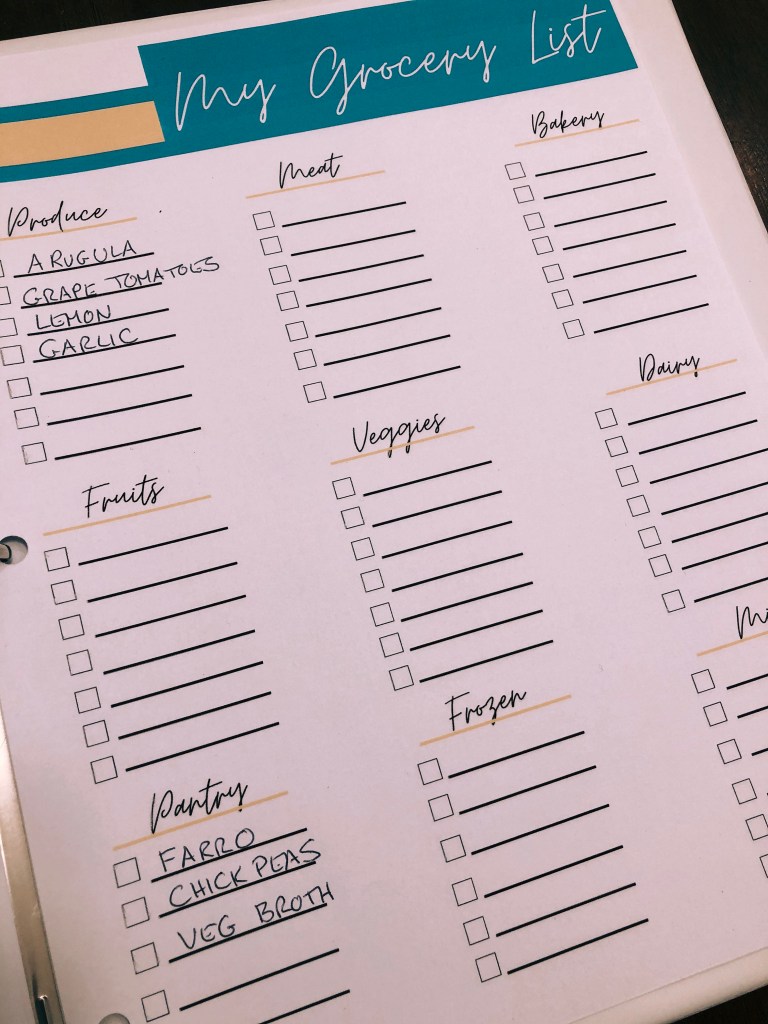 My Grocery List
Produce
ARUGULA
GRAPE TOMATOES
LEMON
GARLIC
Meat
Bakery
Fruits
Veggies
Dairy
Pantry
FARRO
CHICK PEAS
VEG BROTH
Frozen